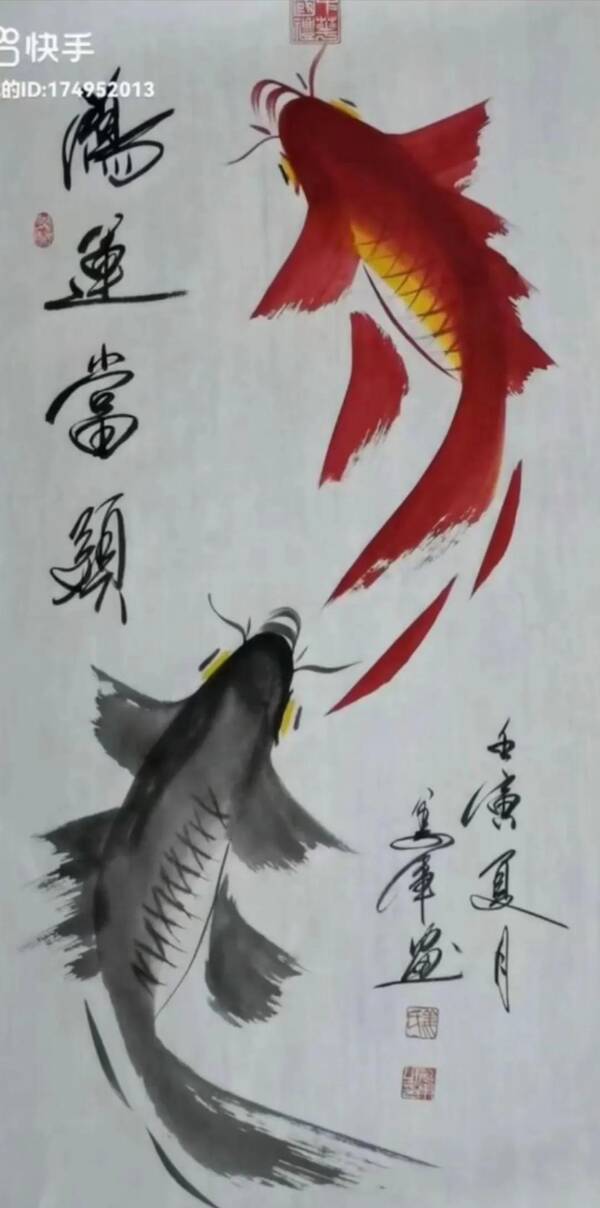 快手
的ID:174952013
鴻運當頭
壬寅夏月